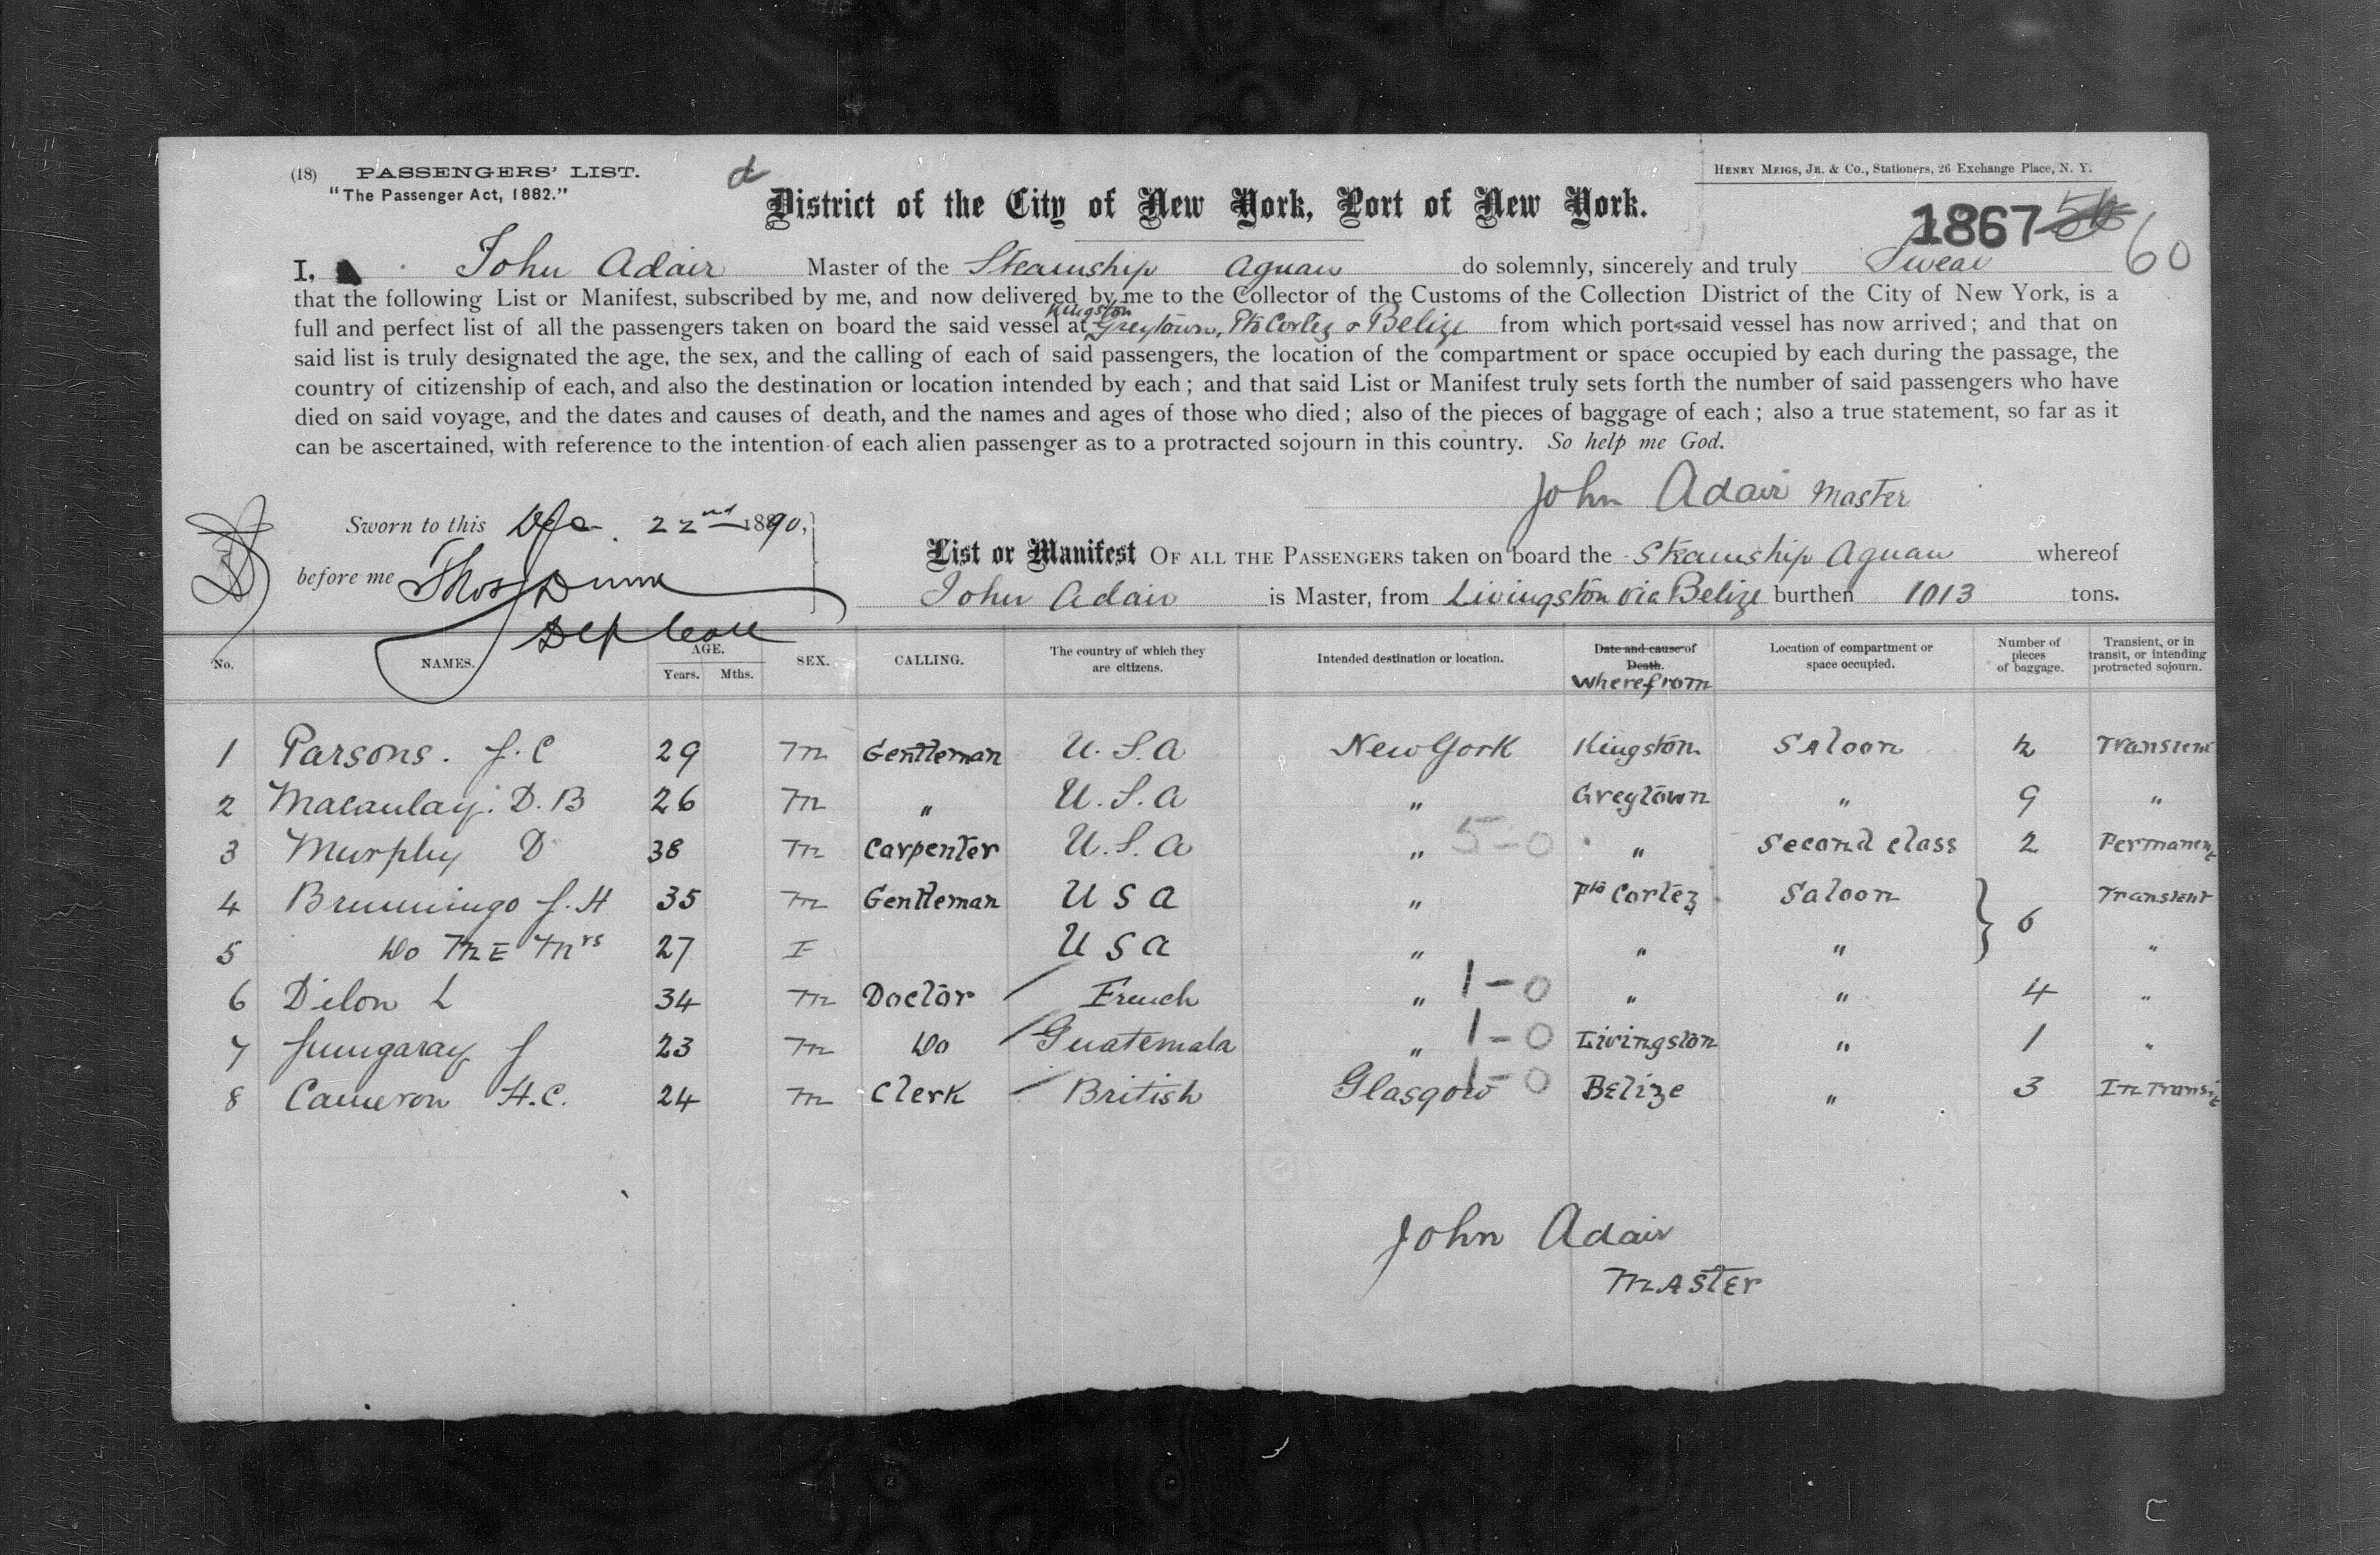 (18) PASSENGERS' LIST.
"The Passenger Act, 1882."
d
HENRY MEIGS, JR. & CO., Stationers, 26 Exchange Place, N. Y.
District of the City of New York, Port of New York.
1867
60
I, John Adair Master of the Steamship Aguan do solemnly, sincerely and truly Swear
that the following List or Manifest, subscribed by me, and now delivered by me to the Collector of the Customs of the Collection District of the City of New York, is a
Kingston
full and perfect list of all the passengers taken on board the said vessel at Greytown, Pto Cortez & Belize from which ports said vessel has now arrived; and that on
said list is truly designated the age, the sex, and the calling of each of said passengers, the location of the compartment or space occupied by each during the passage, the
country of citizenship of each, and also the destination or location intended by each; and that said List or Manifest truly sets forth the number of said passengers who have
died on said voyage, and the dates and causes of death, and the names and ages of those who died; also of the pieces of baggage of each; also a true statement, so far as it
can be ascertained, with reference to the intention of each alien passenger as to a protracted sojourn in this country. So help me God.
John Adair Master
Sworn to this Dec. 22nd 1890,
before me Thos Dunn
Dep
List or Manifest OF ALL THE PASSENGERS taken on board the Steamship Aguan whereof
John Adair is Master, from Livingston via Belize burthen 1013 tons.
No. NAMES. AGE. Years. Mths. SEX. CALLING. The country of which they are citizens. Intended destination or location. Date and cause of Death. Wherefrom Location of compartment or space occupied. Number of pieces of baggage. Transient, or in transit, or intending protracted sojourn.
1 Parsons. J. C 29 M Gentleman U. S. A New York Kingston Saloon 2 Transient
2 Macaulay. D. B 26 M " U. S. A " Greytown " 9 "
3 Murphy D 38 M Carpenter U. S. A " 5-0 " Second class 2 Permanent
4 J. H 35 M Gentleman U S A " Pto Cortez Saloon 6 Transient
5 Do M E Mrs 27 F U S A " " " "
6 Dilon L 34 M Doctor French " 1-0 " " 4 "
7 J 23 M Do Guatemala " 1-0 Livingston " 1 "
8 Cameron H. C. 24 M Clerk British Glasgow 1-0 Belize " 3 In Transit
John Adair
MASTER